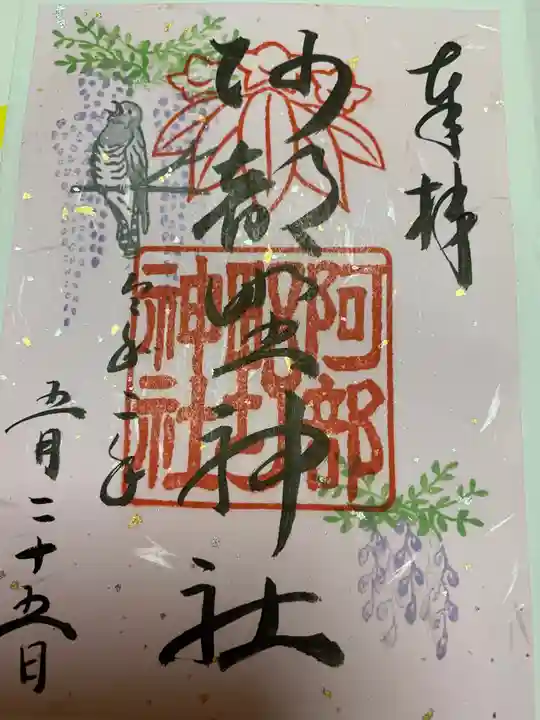 奉拝
阿部野神社
阿部
野
神社
令和二年
五月二十五日